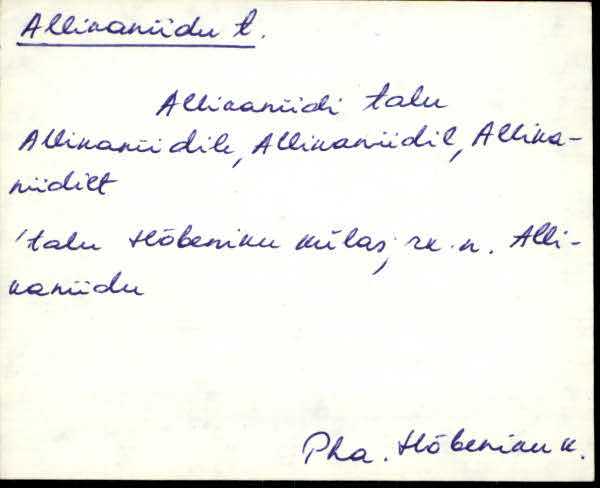 Allikaniidu t.
Allikaniidi talu
Allikaniidile, Allikaniidil, Allika-
niidilt
'talu Hõbeniku külas, rk. n. Alli-
kaniidu
Pha. Hõbeniku k.